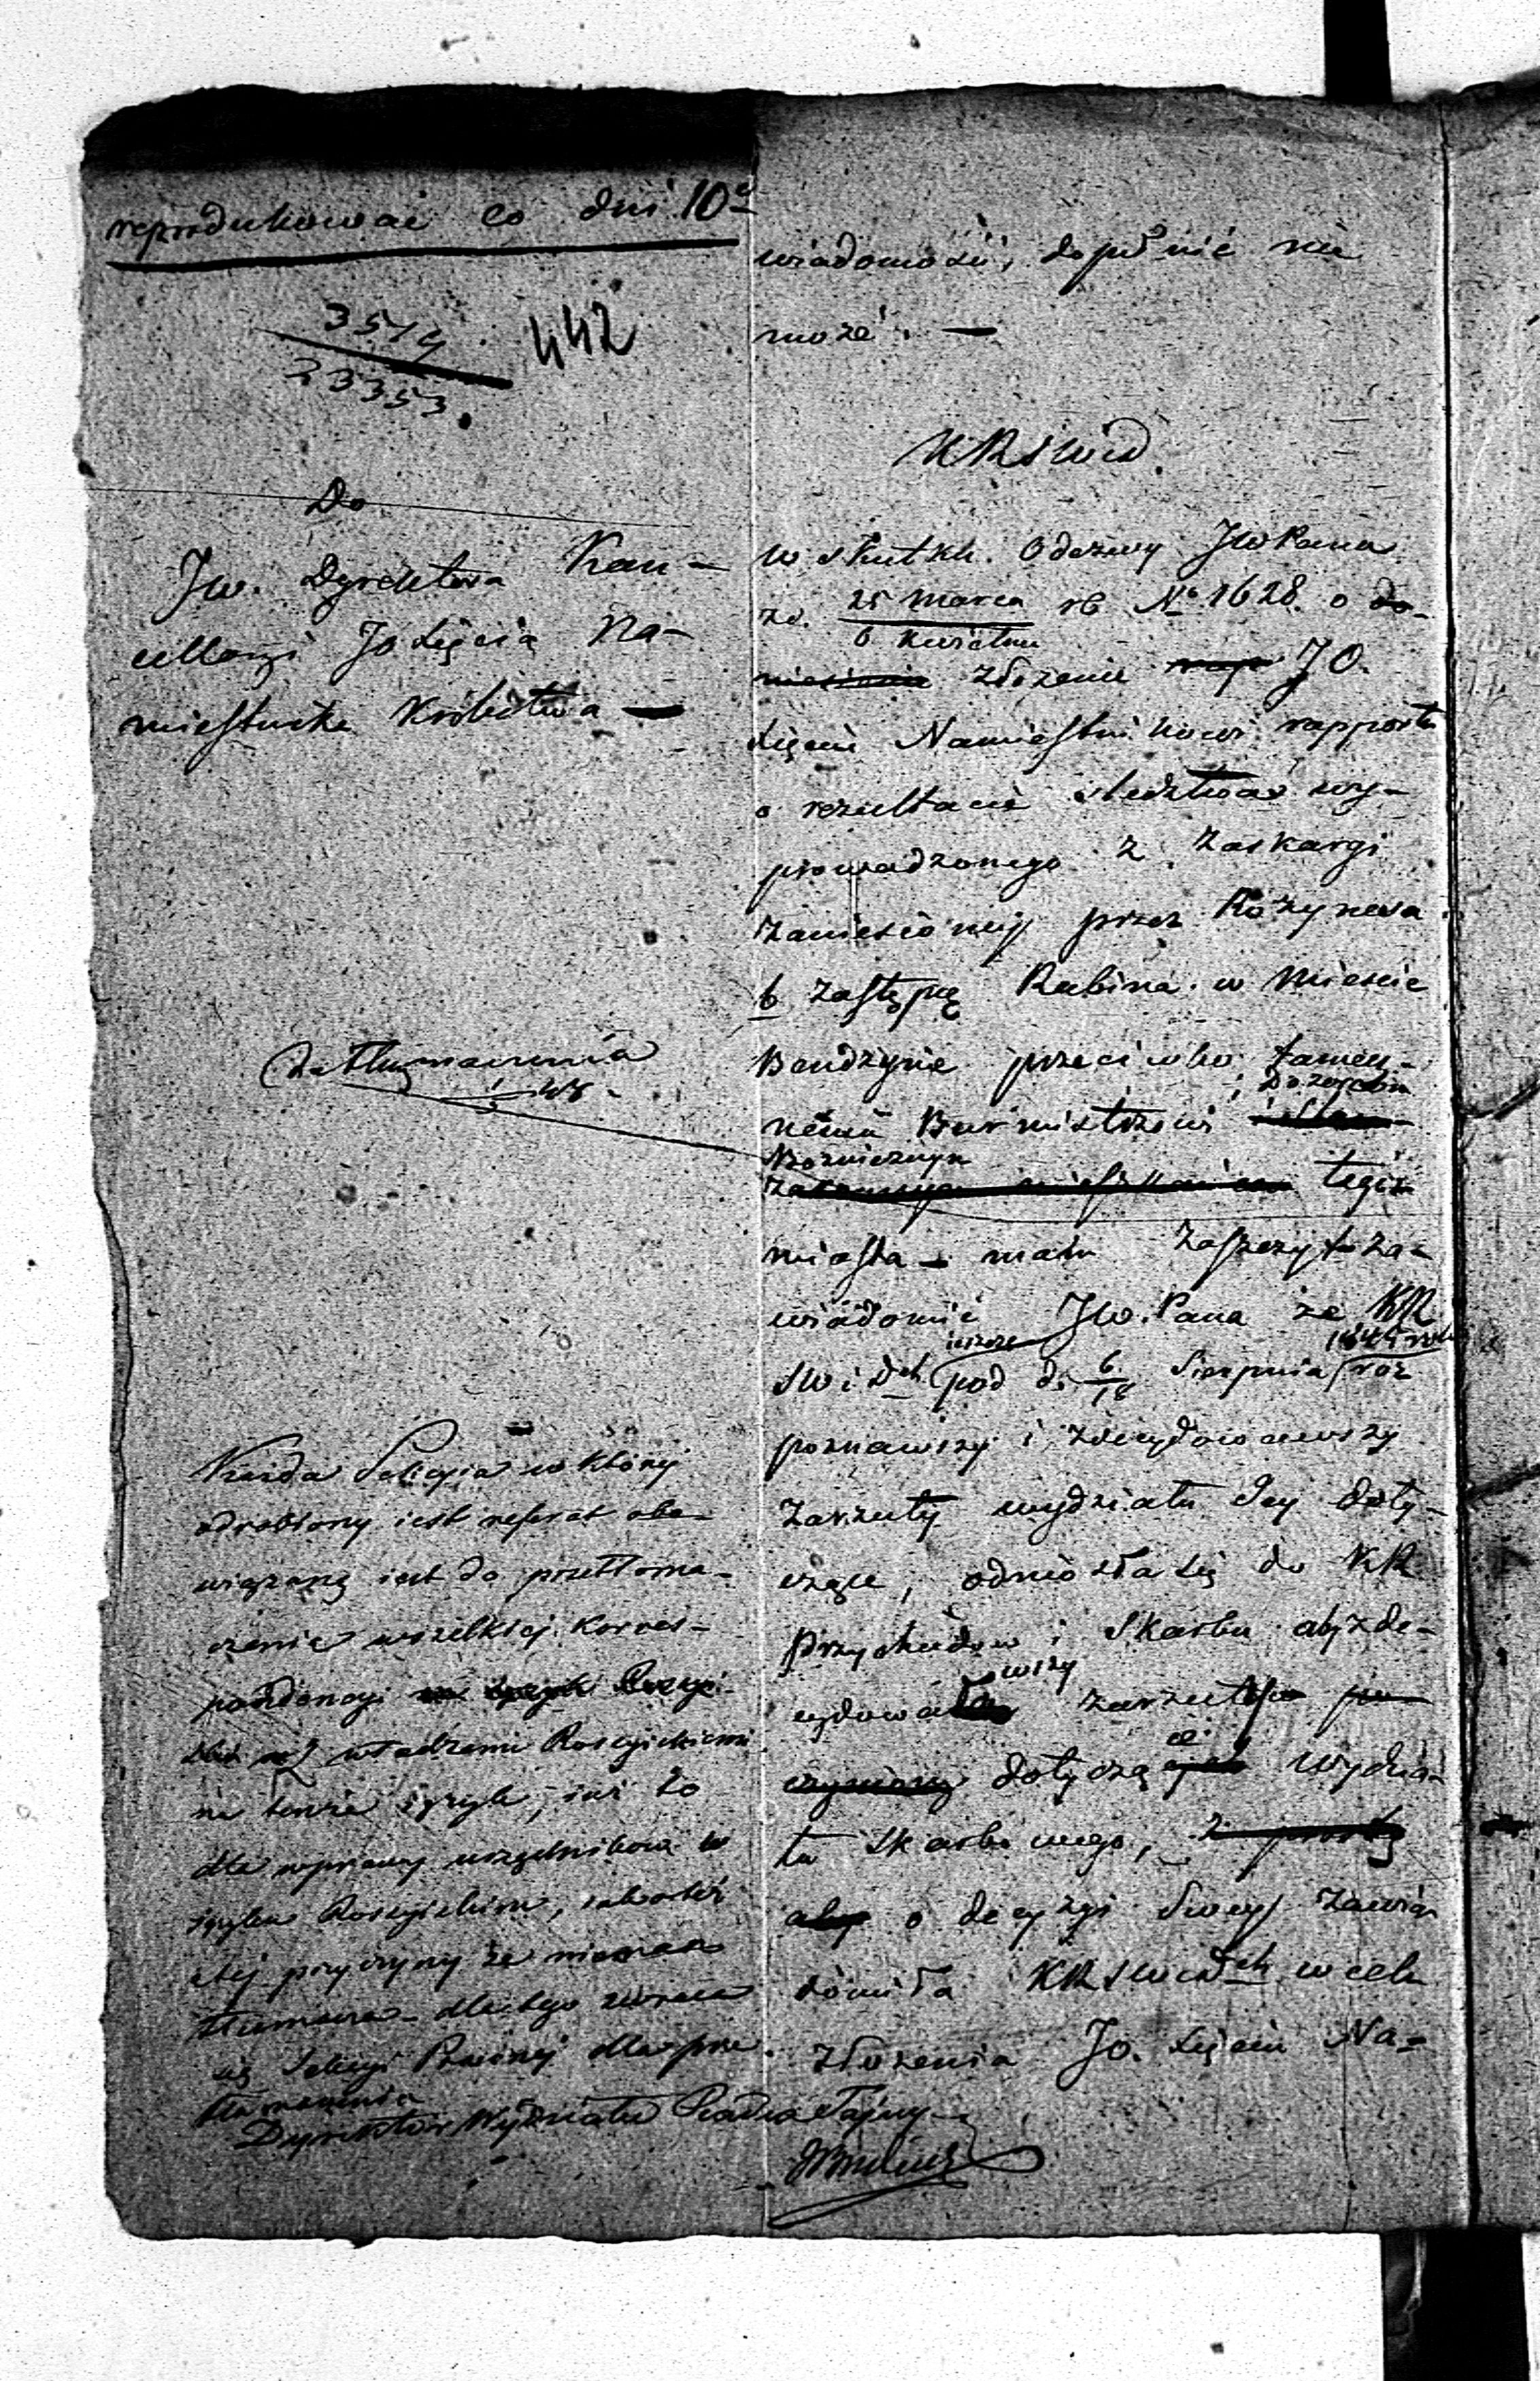 reprodukować co dni 10e
3519
23353.
442
Do
JW. Dyrektora Kan-
cellaryi JO Xięcia Na-
miestnika Królestwa —
do tłumaczenia
Każda Sekcyia w którey
odrobiony iest referat obo-
wiązaną iest do przetłoma-
czenia wszelkiej korres-
pondencyi
władzami Rossyiskiemi
na tenże ięzyk, iuż to
dla wprawy urzędników w
ięzyku Rossyiskim, iako też
z tej przyczyny że niema
tłumacza - dlatego zwraca
się Sekcyi dla prze
tłomaczenia
Dyrektor Wydziału Radca Tajny
wiadomości, dopełnić nie
może. —
KRSWiD.
W skutku Odezwy JWPana
zd. 25 Marca / 6 Kwietnia rb No 1628. o do-
niesienie złożenie JO.
Xięciu Namiestnikowi rapportu
o rezultacie śledztwa wy-
prowadzonego z zaskargi
zaniesionej przez Rożynera
b zastępcę Rabina w Mieście
Bendzynie przeciwko tamecz-
nemu Burmistrzowi i Dozorcom
Bożniczym
tegoż
miasta — mam zaszczyt za-
wiadomić JW. Pana że KR
SWiDch ieszcze pod d. 6/18 Sierpnia 1845 roku roz
poznawszy i zdecydowawszy
zarzuty wydziału Jey doty-
czące, odniosła się do KR
Przychodów i Skarbu aby zde-
cydowawszy zarzuty
dotyczące wydzia-
łu Skarbowego,
aby o decyzyi Swey zawia-
domiła KRSWiDch w celu
złożenia JO. Xięciu Na-